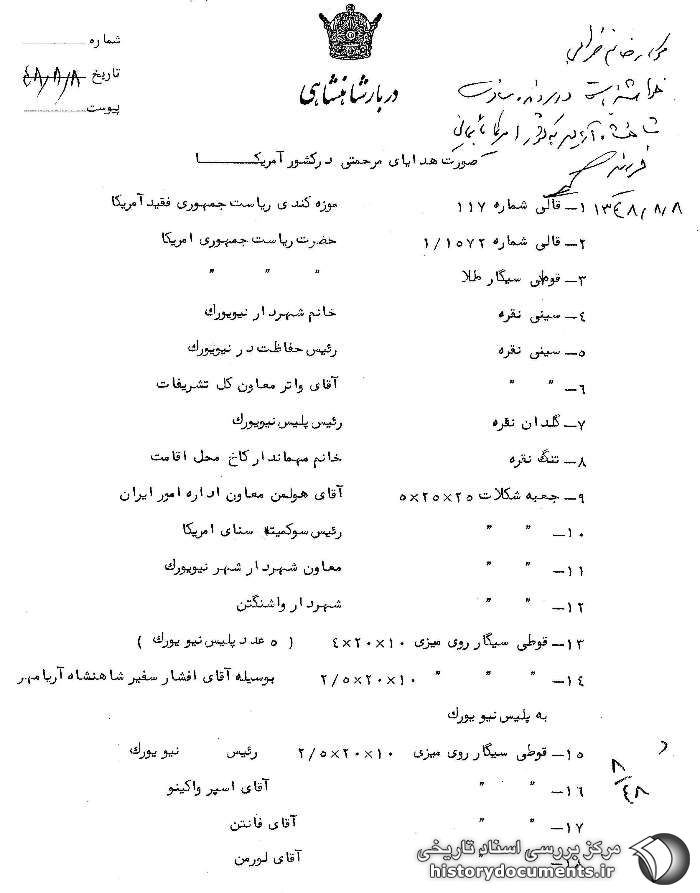 دربار شاهنشاهی
شماره
تاریخ ۴۸/۸/۸
پیوست
سرکار خانم
خواهشمند است در پرونده
شاهنشاه آریامهر به کشور امریکا بایگانی
فرمایید
۱۳۴۸/۸/۸
صورت هدایای مرحمتی در کشور آمریکا
۱- قالی شماره ۱۱۷ موزه کندی ریاست جمهوری فقید آمریکا
۲- قالی شماره ۱/۱۵۷۲ حضرت ریاست جمهوری امریکا
۳- قوطی سیگار طلا " " "
۴- سینی نقره خانم شهردار نیویورك
۵- سینی نقره رئیس حفاظت در نیویورك
۶- " " آقای واتر معاون کل تشریفات
۷- گلدان نقره رئیس پلیس نیویورك
۸- تنگ نقره خانم مهماندار کاخ محل اقامت
۹- جعبه شکلات ۲۵×۲۵×۵ آقای هولمن معاون اداره امور ایران
۱۰- " " " رئیس سوکمیته سنای امریکا
۱۱- " " " معاون شهردار شهر نیویورك
۱۲- " " " شهردار واشنگتن
۱۳- قوطی سیگار روی میزی ۱۰×۲۰×۴ ( ۵ عدد پلیس نیو یورك )
۱۴- " " " ۱۰×۲۰×۲/۵ بوسیله آقای افشار سفیر شاهنشاه آریامهر
به پلیس نیو یورك
۱۵- قوطی سیگار روی میزی ۱۰×۲۰×۲/۵ رئیس نیو یورك
۱۶- " " آقای اسپر واکینو
۱۷- " " آقای فانتن
۱۸- " آقای لورمن
۸/۴۸
مرکز بررسی اسناد تاریخی
historydocuments.ir